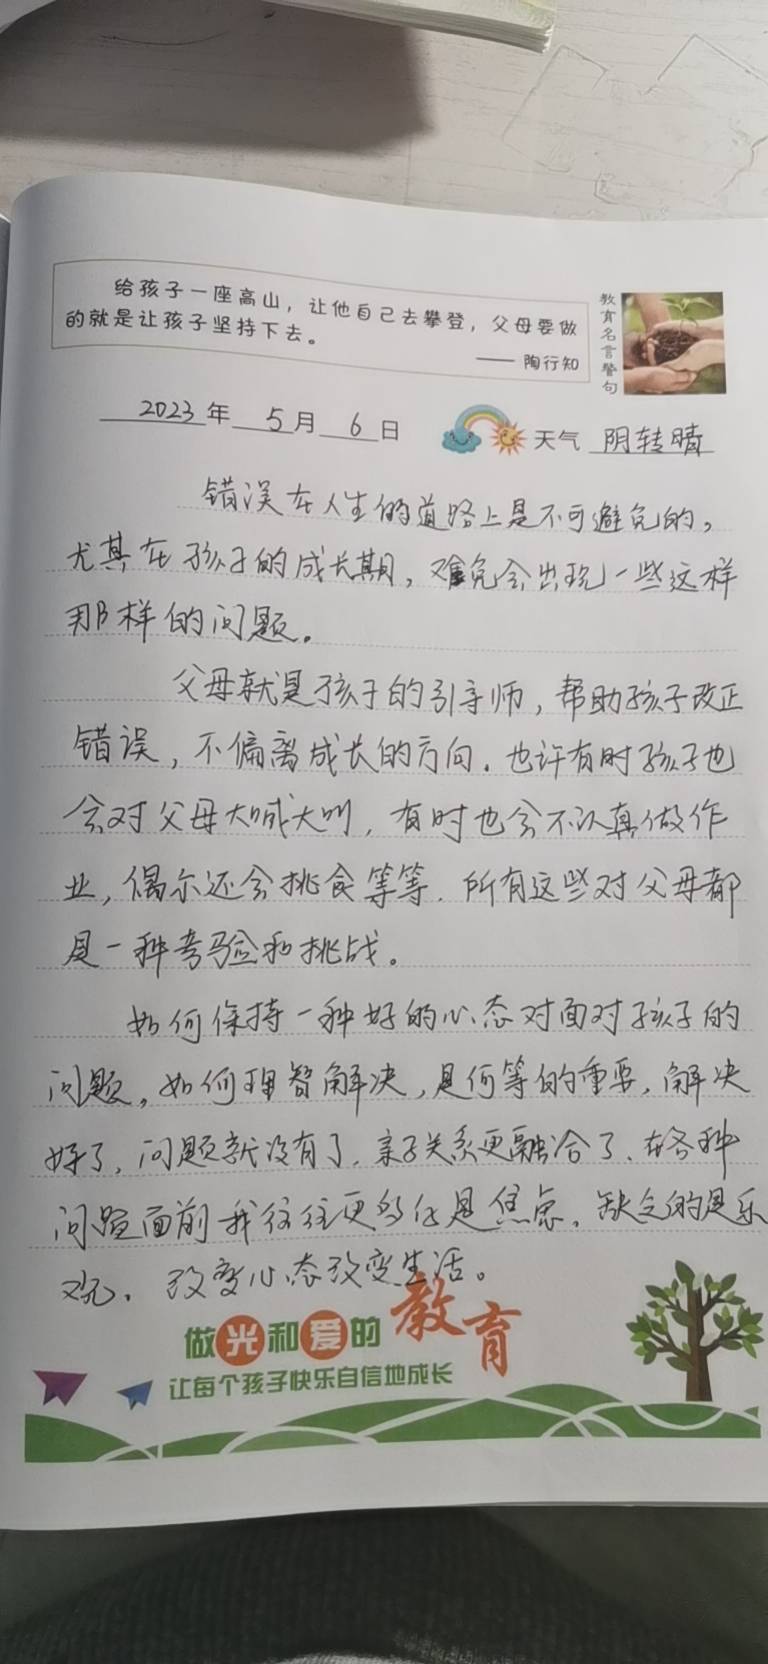 给孩子一座高山，让他自己去攀登，父母要做
的就是让孩子坚持下去。
——陶行知
教育名言警句
2023年 5月 6日
天气 阴转晴
错误在人生的道路上是不可避免的，
尤其在孩子的成长期，难免会出现一些这样
那样的问题。
父母就是孩子的引导师，帮助孩子改正
错误，不偏离成长的方向。也许有时孩子也
会对父母大喊大叫，有时也会不认真做作
业，偶尔还会挑食等等。所有这些对父母都
是一种考验和挑战。
如何保持一种好的心态对面对孩子的
问题，如何理智解决，是何等的重要，解决
好了，问题就没有了，亲子关系更融合了、在各种
问题面前我往往更多的是焦虑，缺乏的是乐
观，改变心态改变生活。
做光和爱的教育
让每个孩子快乐自信地成长